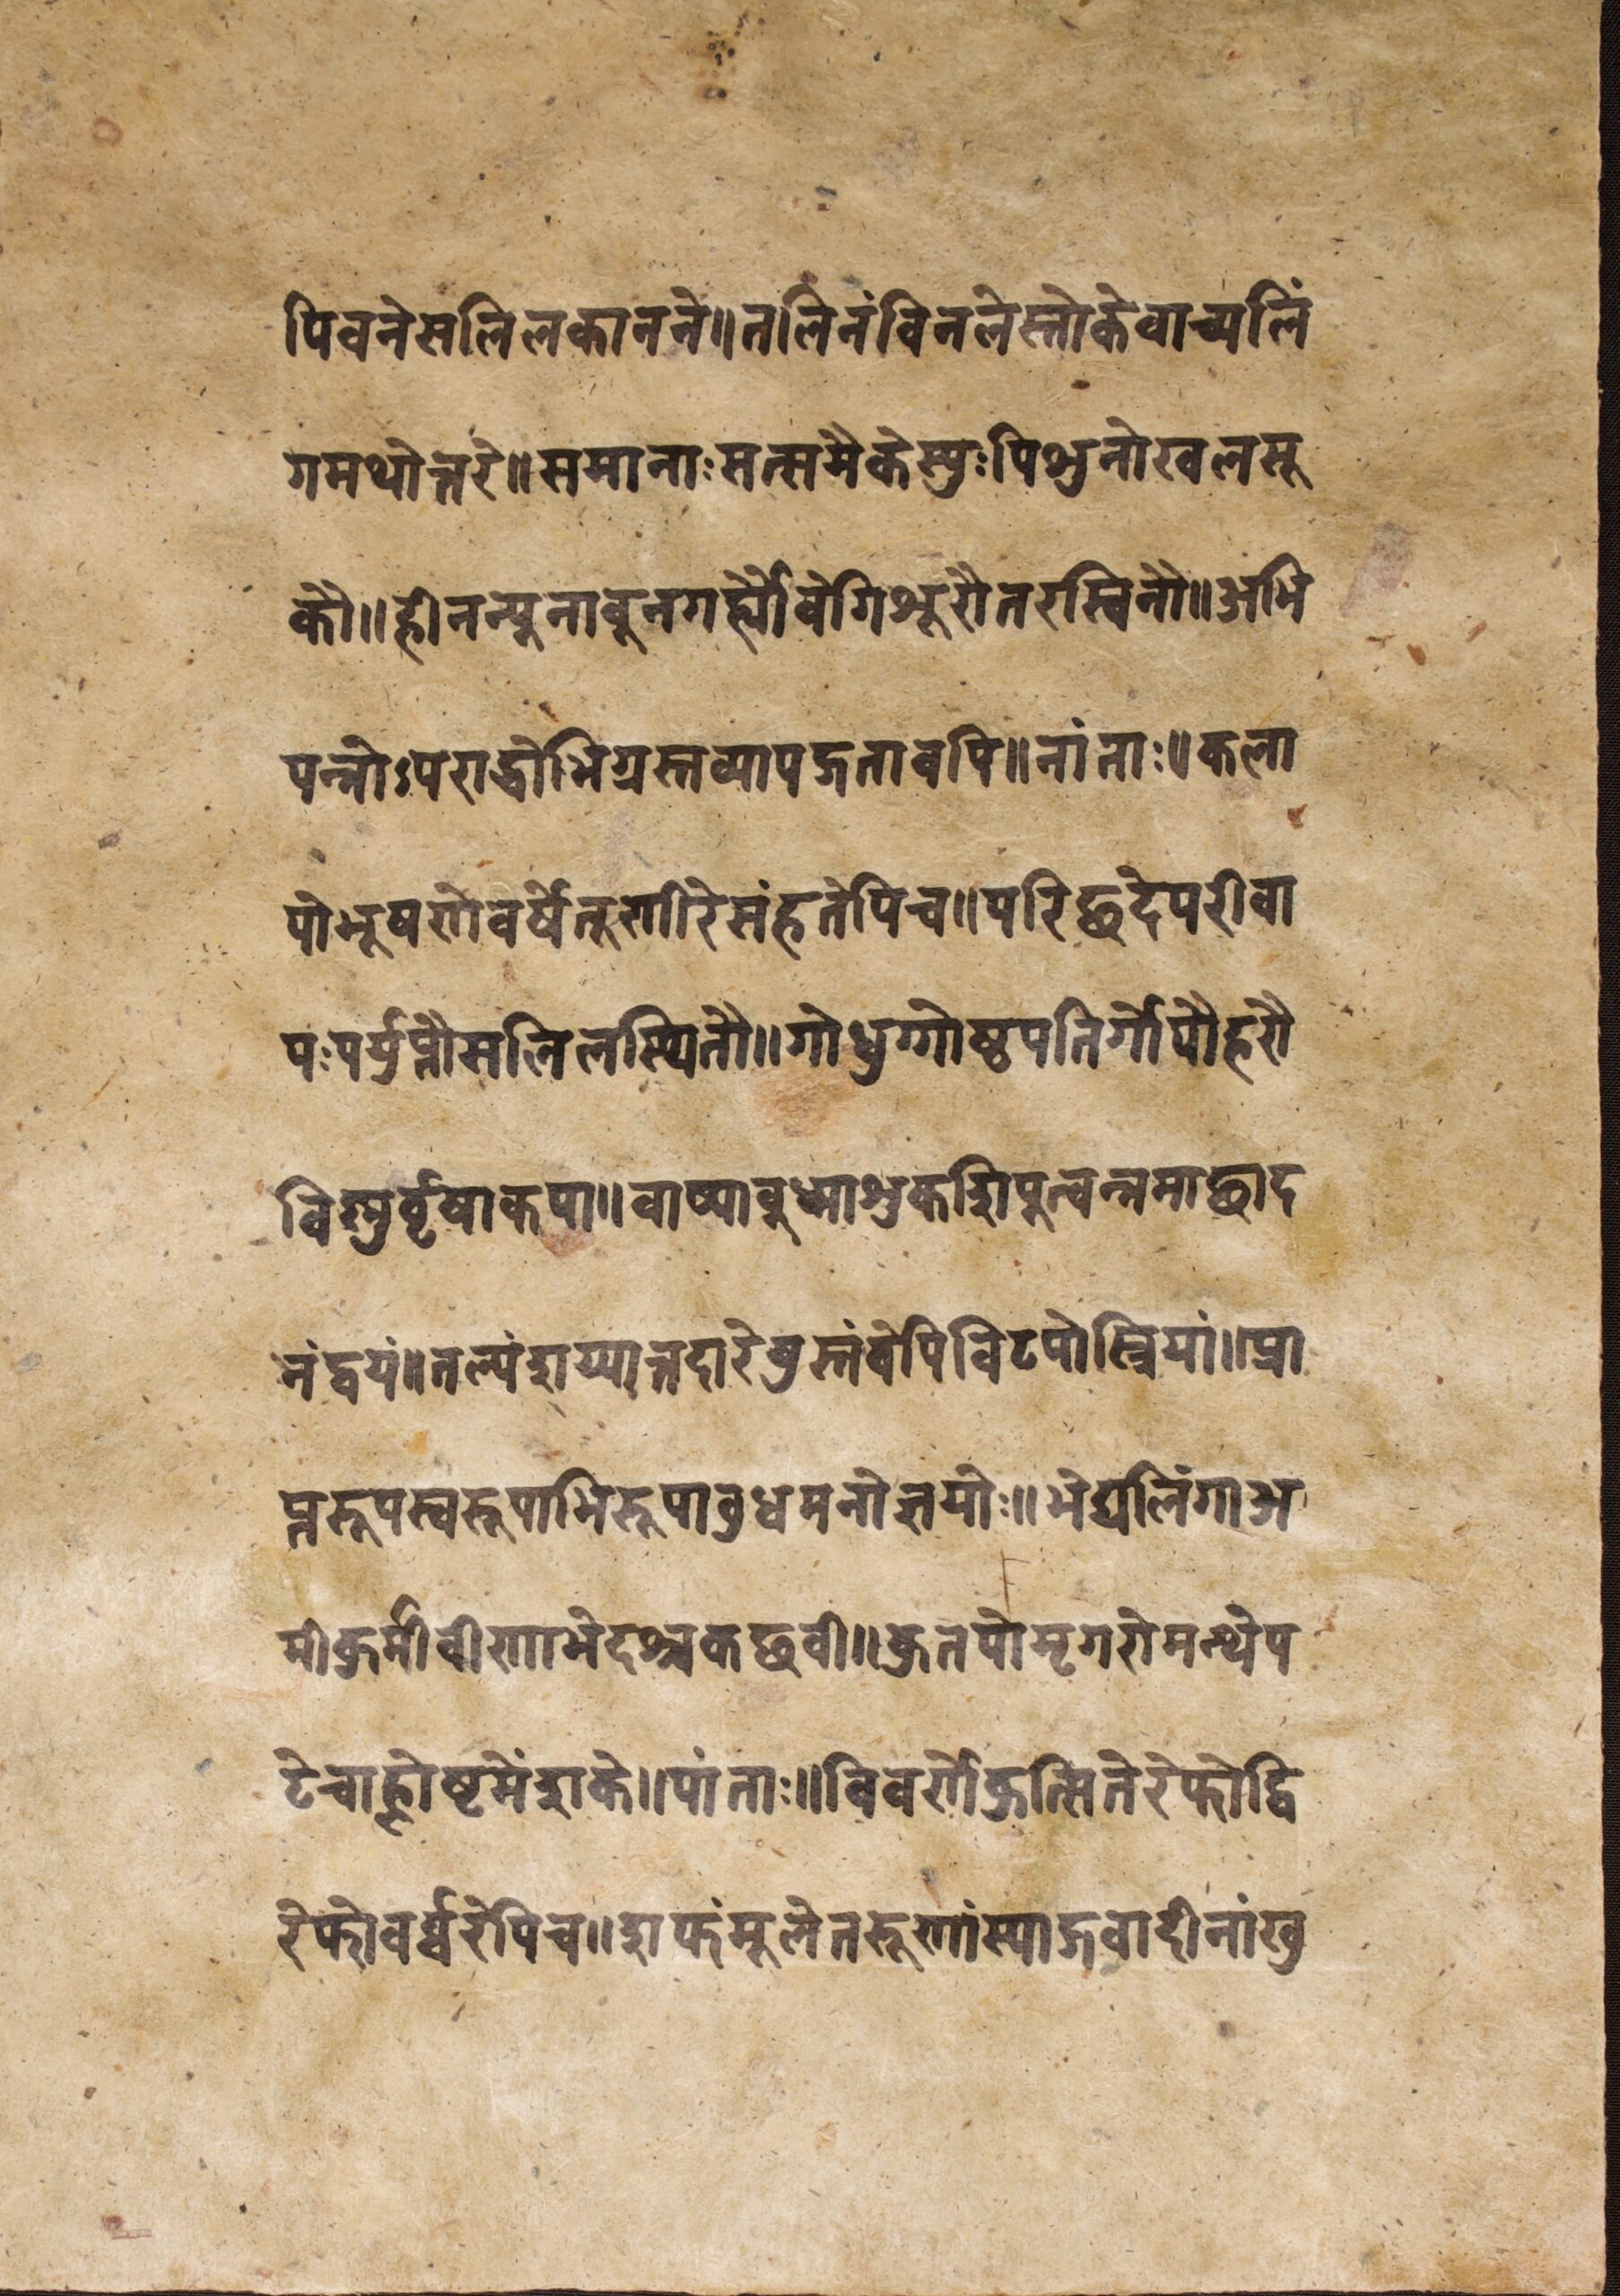 पिवनेसलिलकानने॥तलिनंविनलेस्तोकेवाच्यलिं
गमथोत्तरे॥समानाःसत्समैकेस्युःपिशुनोखलसू
कौ॥हीनन्यूनावूनगर्ह्यौवेगिशूरौतरस्विनौ॥अभि
पन्नोऽपराद्धोभिग्रस्तव्यापद्गतावपि॥नांताः॥कला
पोभूषणेवर्षेतूणीरेसंहतेपिच॥परिछदेपरीवा
पःपर्युप्तौसलिलस्थितौ॥गोधुग्गोष्ठपतिर्गोपौहरौ
विष्णुर्वृषाकपा॥वाष्पावूष्माश्रुकशिपुत्वन्नमाछाद
नंद्वयं॥तल्पंशय्यान्नदारेवुस्तंवेपिविटपोस्त्रियां॥प्रा
प्तरूपस्वरूपाभिरूपावुधमनोज्ञयोः॥भेद्यलिंगाअ
मीकुर्मीवीणाभेदश्चकछवी॥कुतपोमृगरोमन्थेप
टेचाह्नोष्टमेंशके॥पांताः॥विवर्णेकुत्सितेरेफोद्वि
रेफोवर्ध्वरेपिच॥शफंमूलेतरूणांस्याद्गवादीनांखु